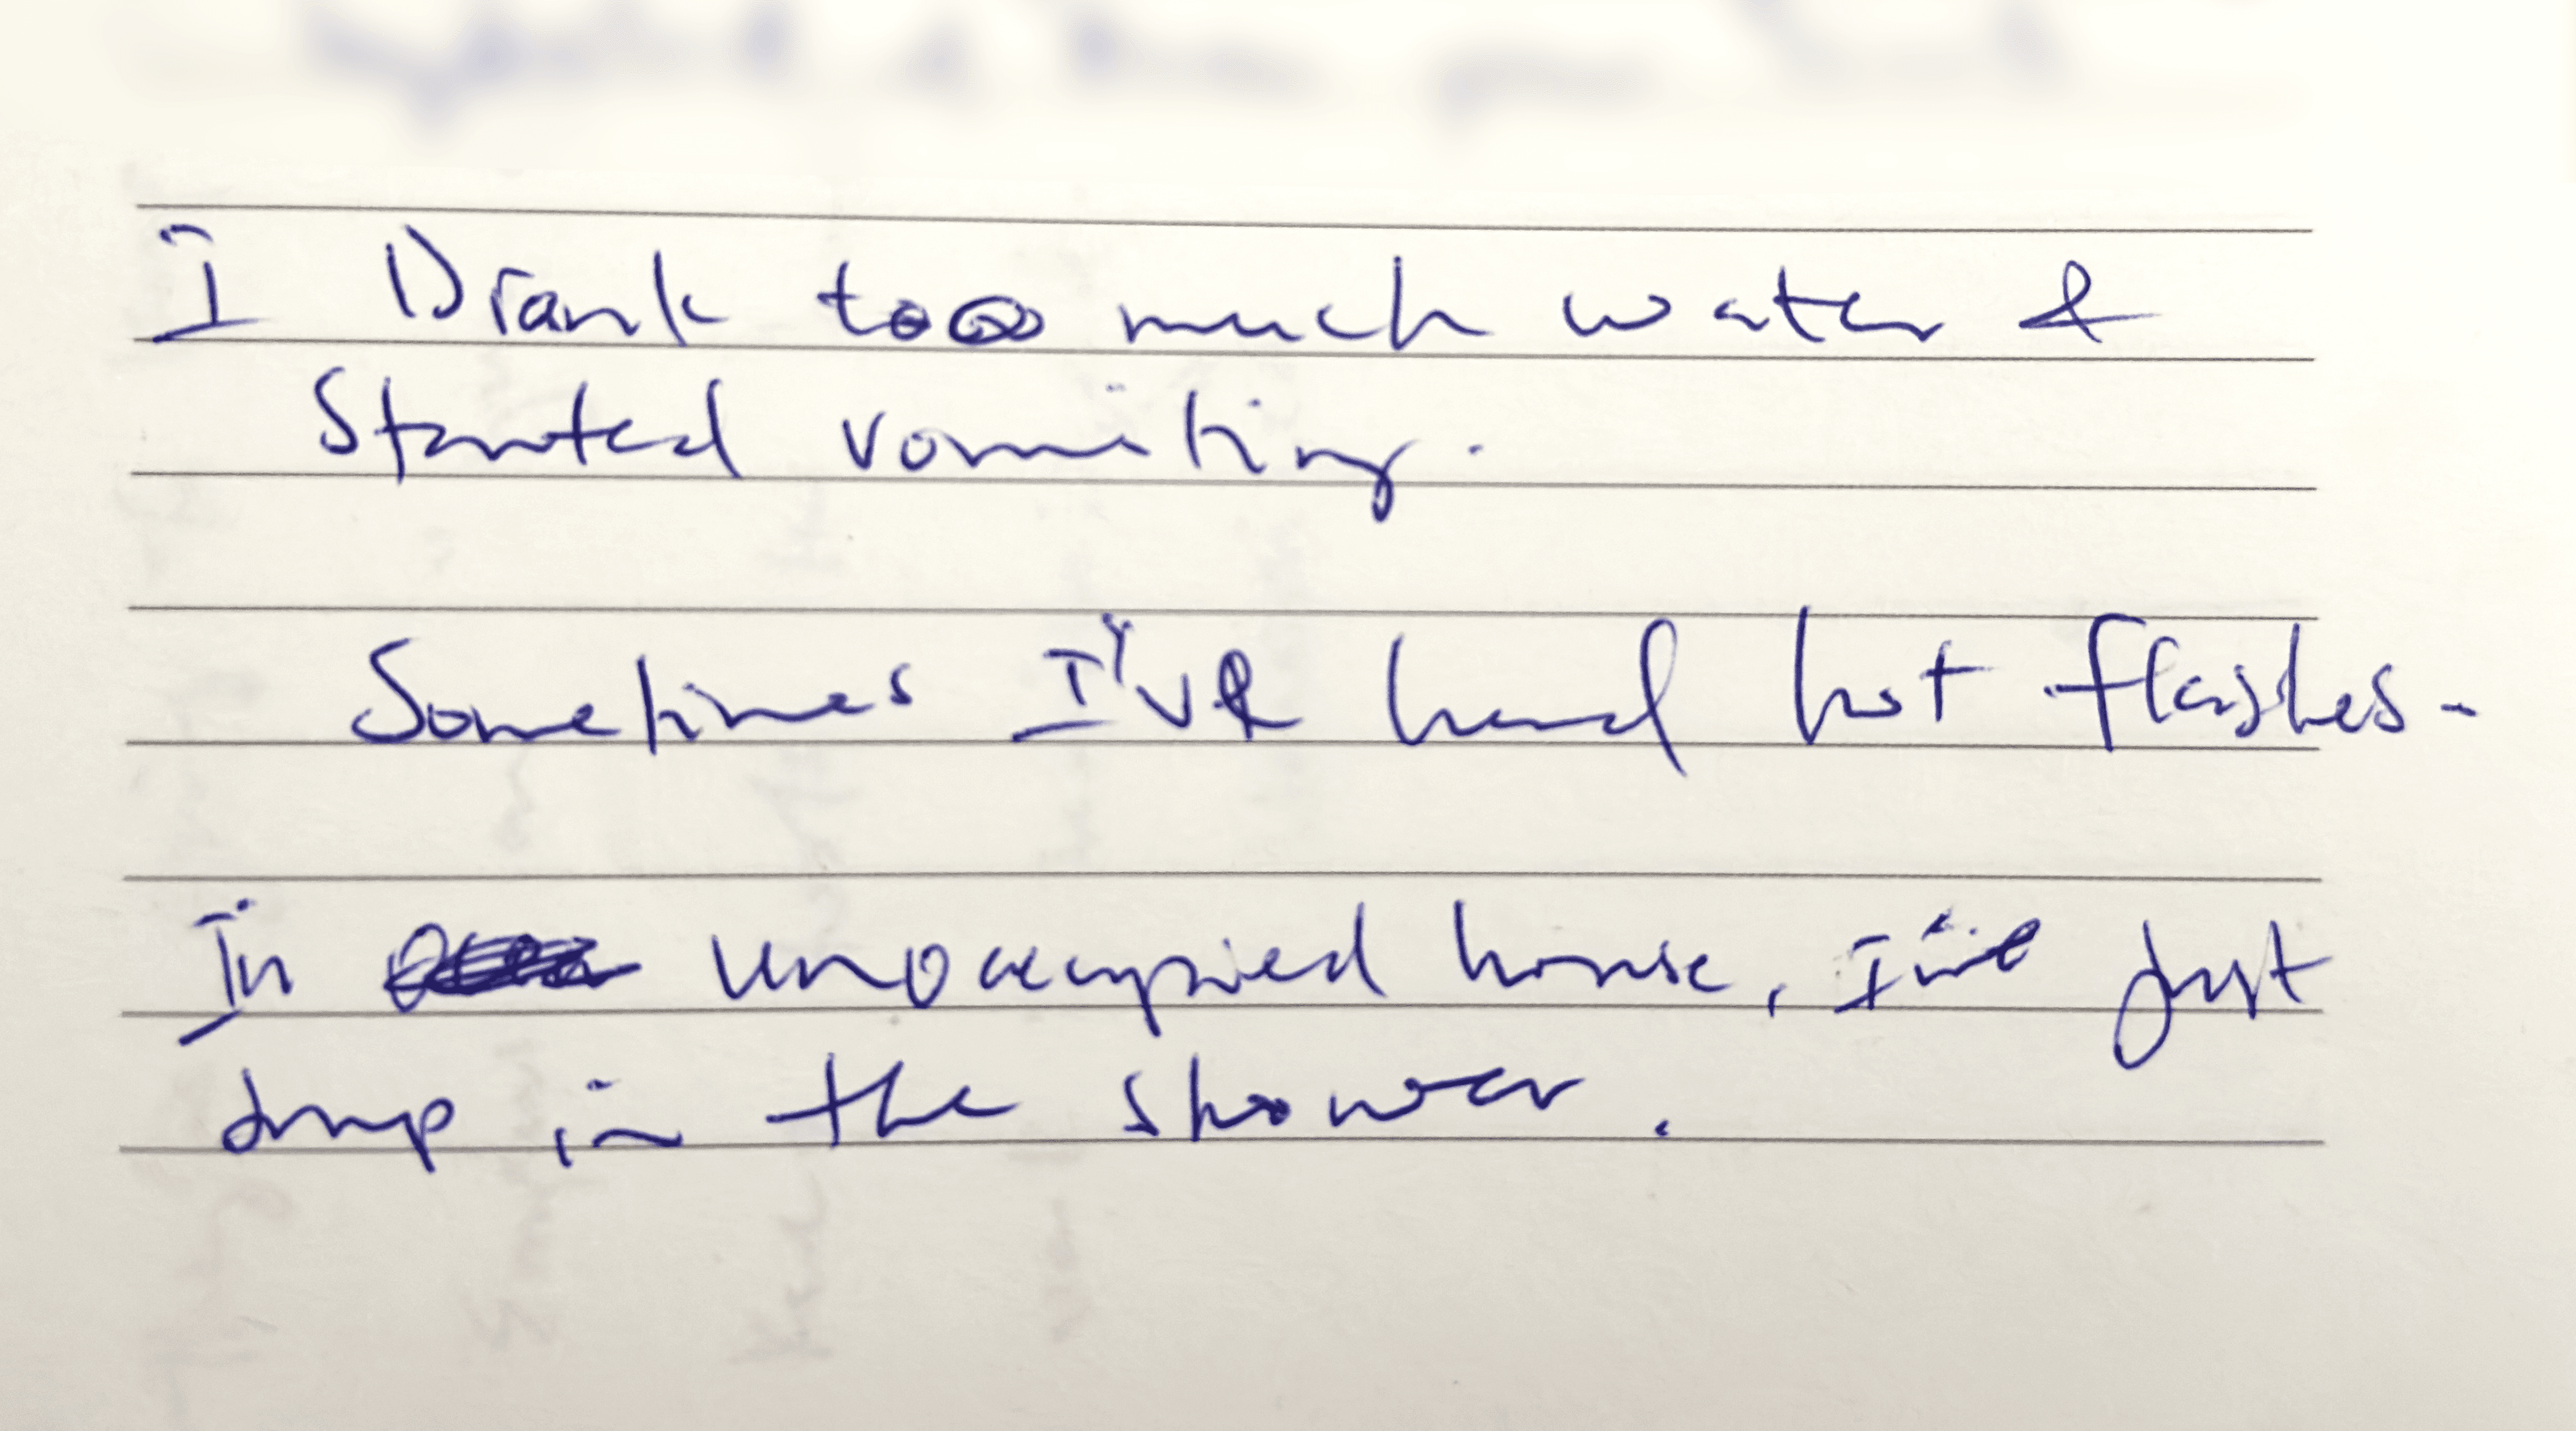 I Drank too much water &
Started vomiting.
Sometimes I've had hot flashes.
In unoccupied house, I've just
drop in the shower.